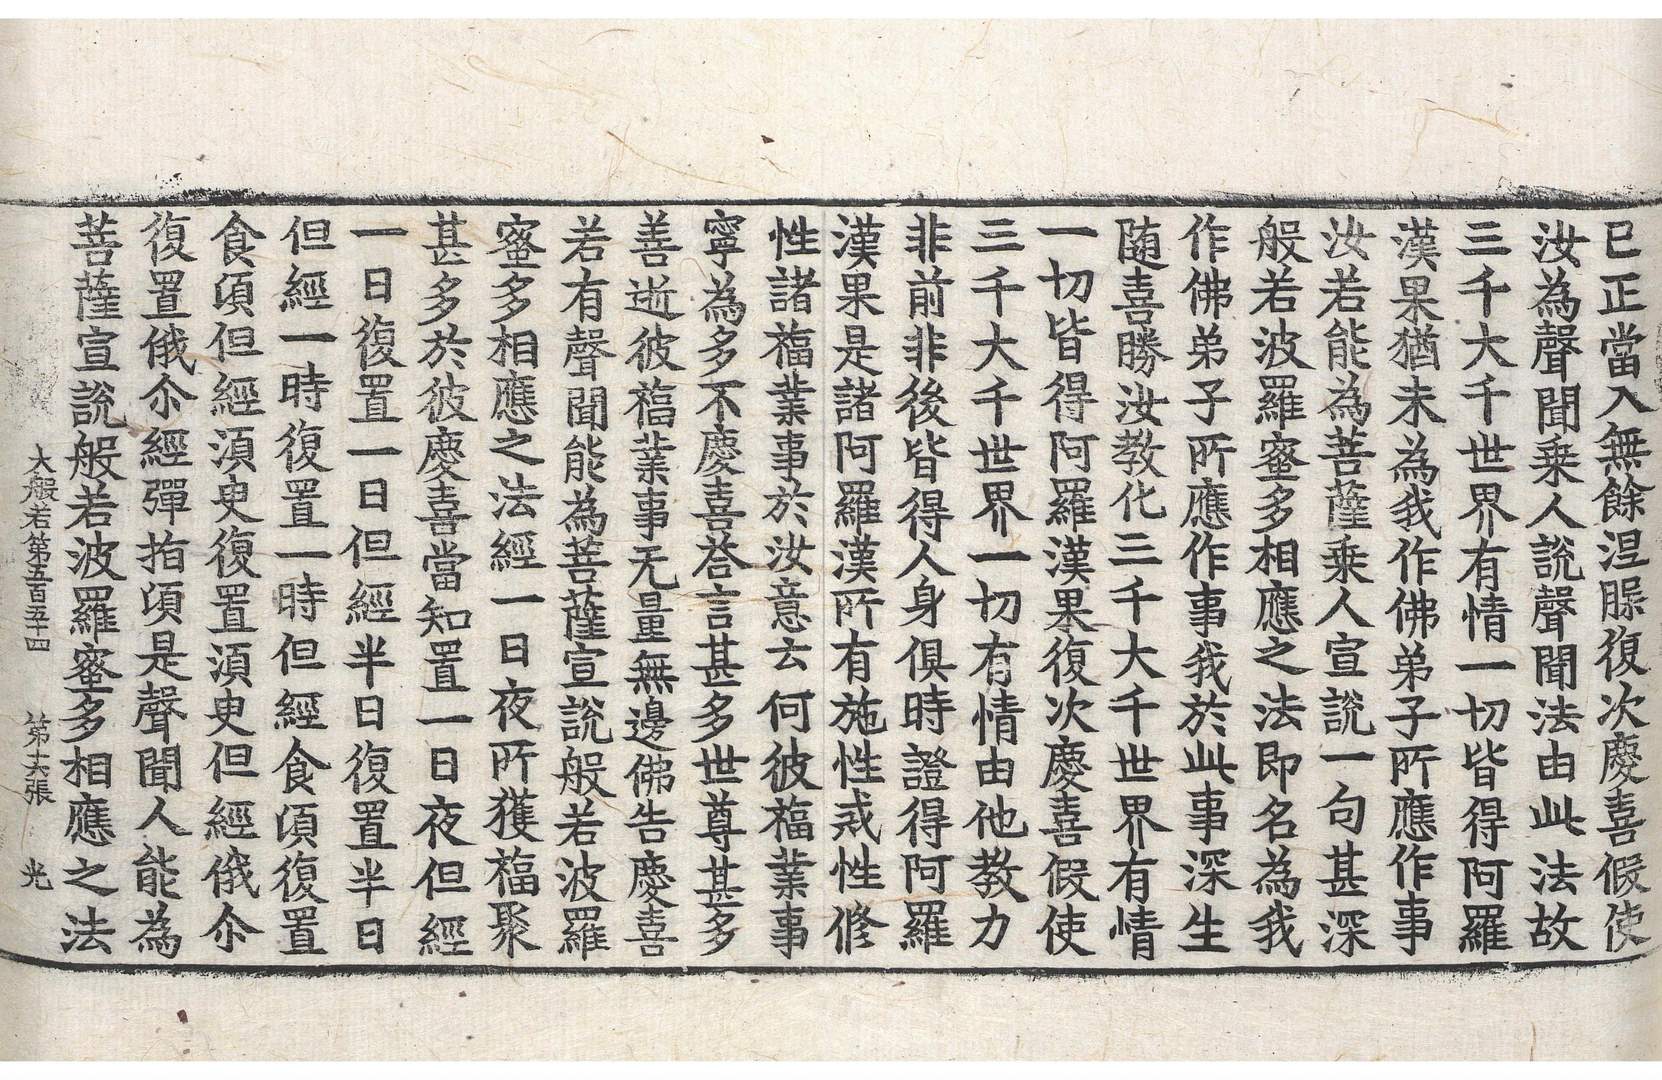 已正當入無餘涅脲復次慶喜假使
汝為聲聞乗人説聲聞法由此法故
三千大千世界有情一切皆得阿羅
漢果猶未為我作佛弟子所應作事
汝若能為菩薩乗人宣説一句甚深
般若波羅蜜多相應之法即名為我
作佛弟子所應作事我於此事深生
随喜勝汝教化三千大千世界有情
一切皆得阿羅漢果復次慶喜假使
三千大千世界一切有情由他教力
非前非後皆得人身俱時證得阿羅
漢果是諸阿羅漢所有施性戒性修
性諸福業事於汝意云何彼福業事
寧為多不慶喜荅言甚多世尊甚多
善逝彼福業事无量無邊佛告慶喜
若有聲聞能為菩薩宣説般若波羅
蜜多相應之法經一日夜所獲福聚
甚多於彼慶喜當知置一日夜但經
一日復置一日但經半日復置半日
但經一時復置一時但經食頃復置
食須但經須臾復置須臾但經俄尒
復置俄尒經彈指頃是聲聞人能為
菩薩宣説般若波羅蜜多相應之法
大般若第五百五十四 第十六張 光